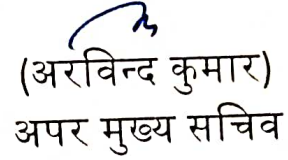 (अरविन्द कुमार)
अपर मुख्य सचिव